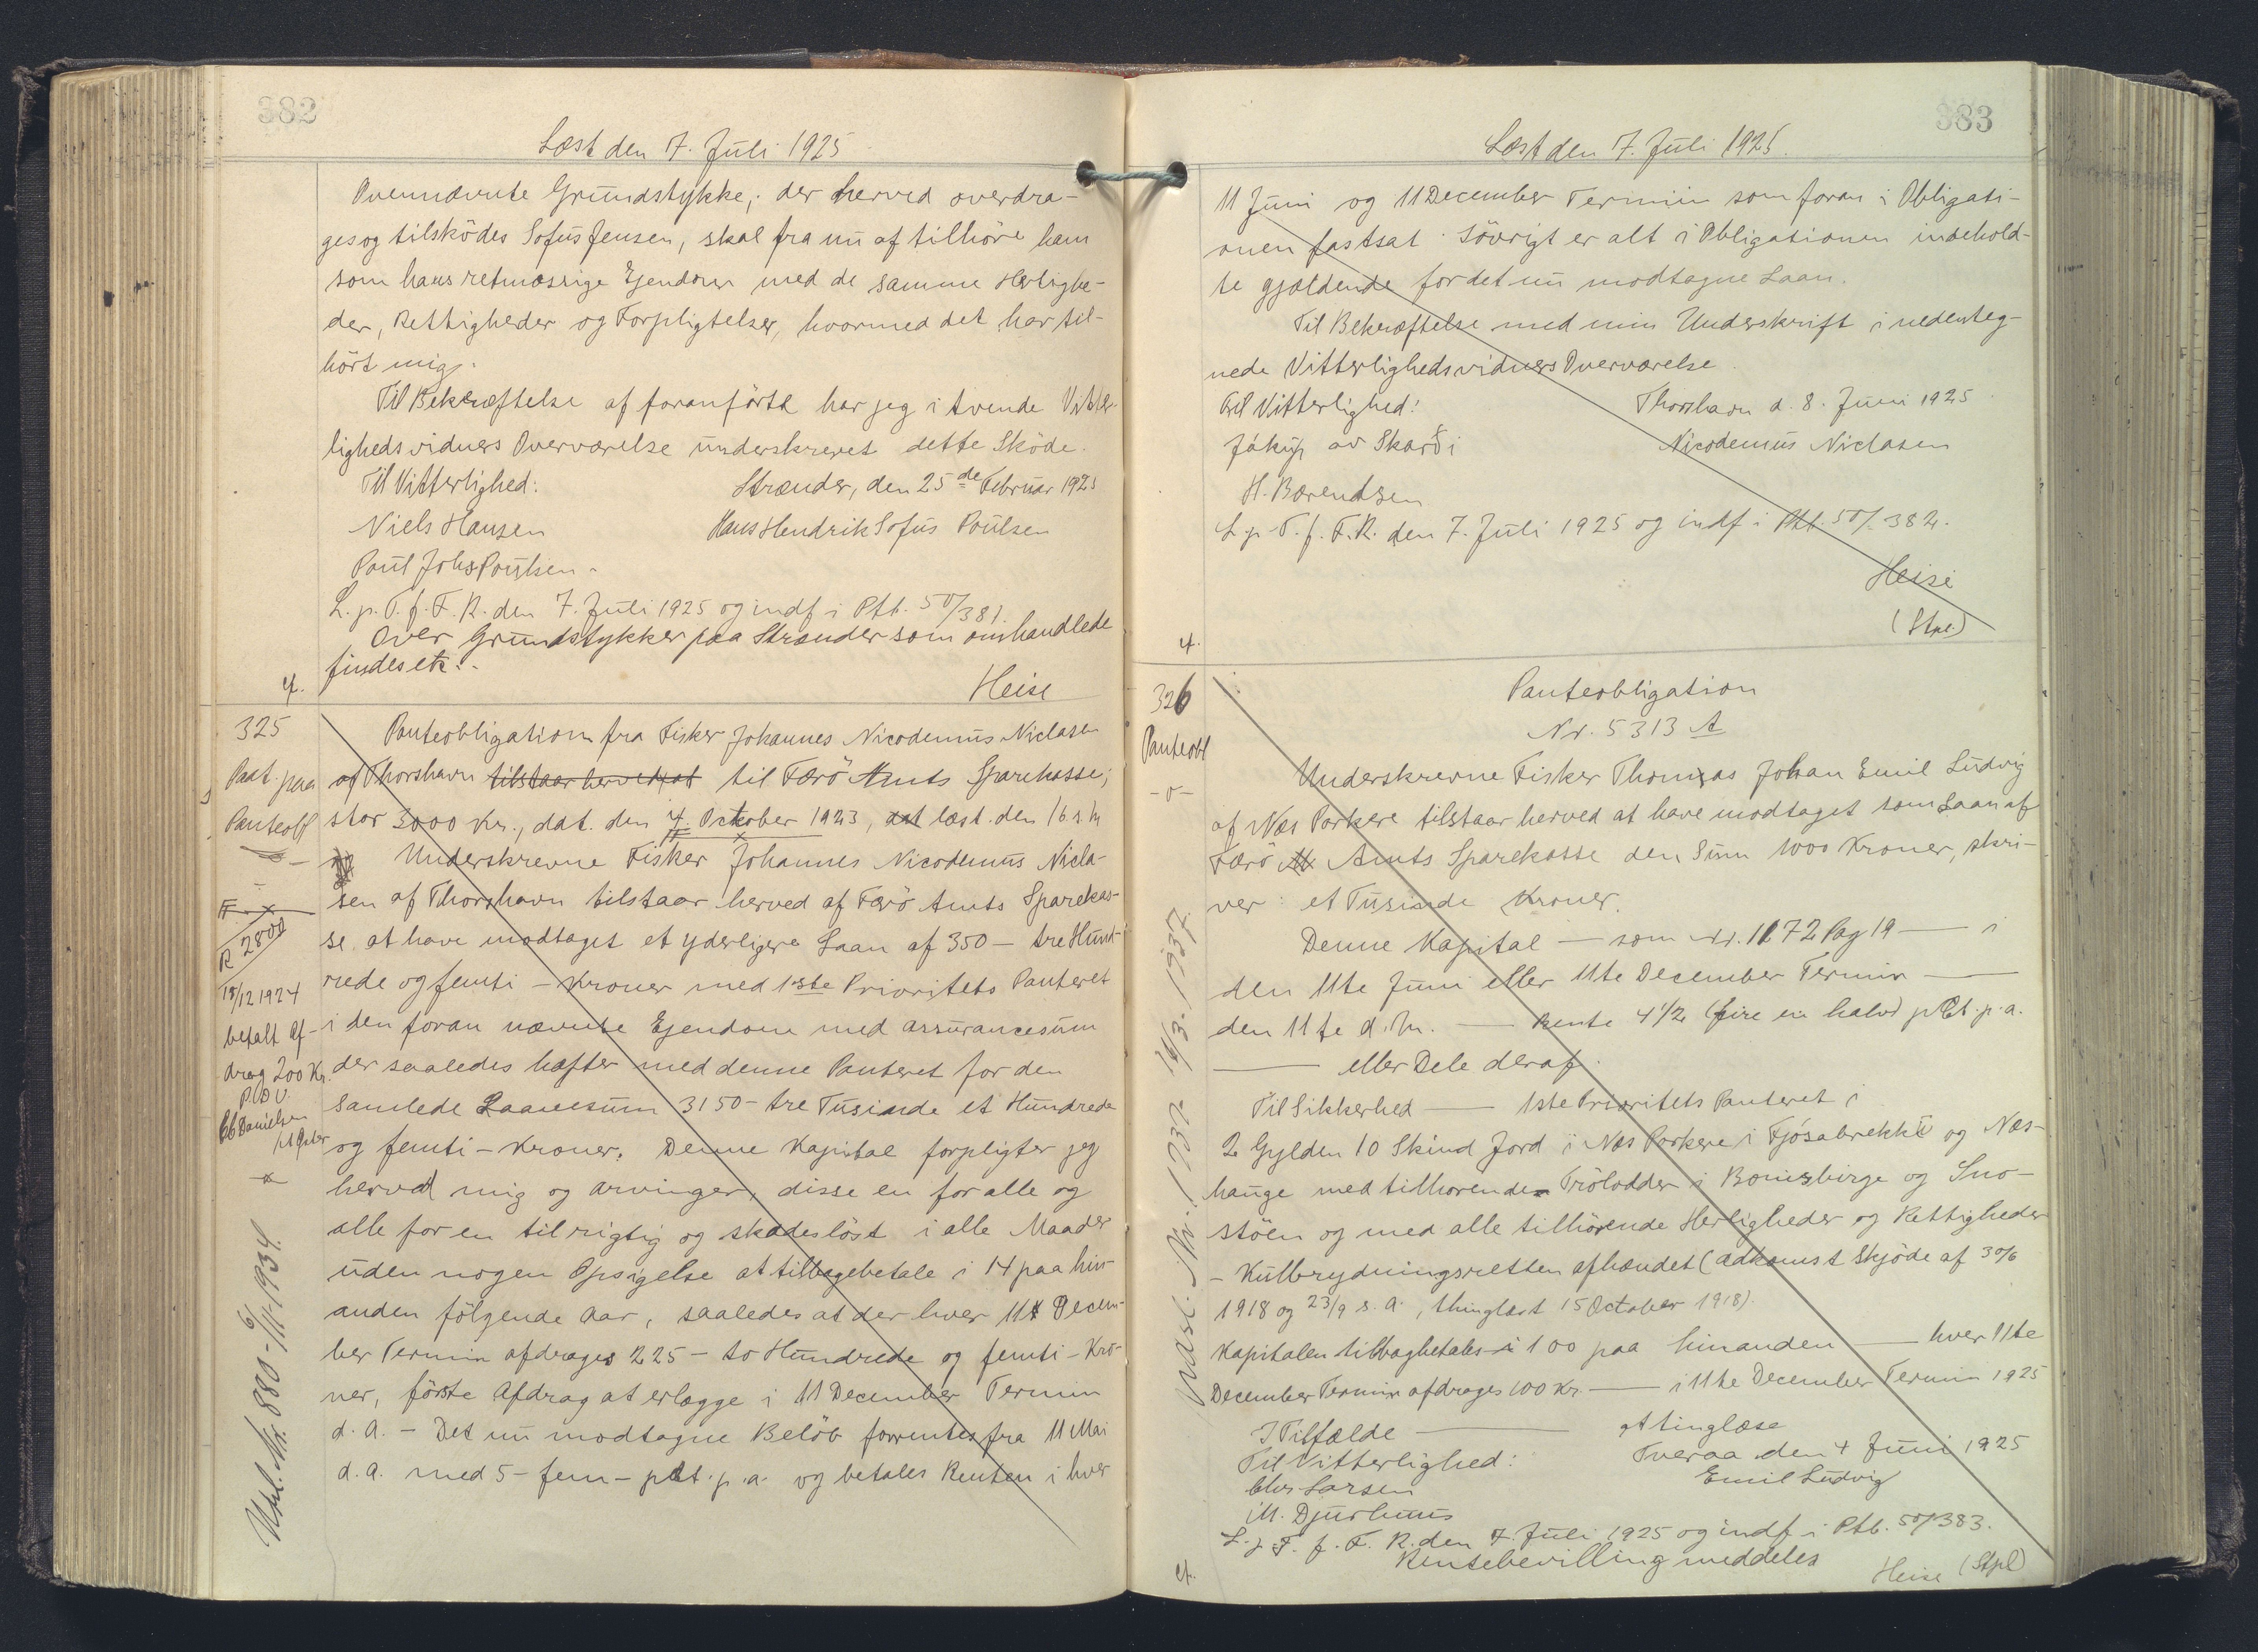 382
Læst den 7. Juli 1925
Ovennævnte Grundstykke, der herved overdra-
ges og tilsködes Sofus Jensen, skal fra nu af tilhöre ham
som hans retmæssige Ejendom med de samme Herlighe-
der, Rettigheder og Forpligtelser, hvormed det har til-
hört mig.
Til Bekræftelse af foranförte har jeg i tvende Vitter-
lighedsvidners Overværelse underskrevet dette Sköde.
Til Vitterlighed:
Strænder, den 25de Februar 1925
Niels Hansen
Hans Hendrik Sofus Poulsen
Poul Johs Poulsen
L. p. T. f. F. R. den 7. Juli 1925 og indf i Ptb. 50/381.
Over Grundstykker paa Strænder som omhandlede
findes etc.
Heise
325
Paat. paa
Panteobl
Panteobligation fra Fisker Johannes Nicodemus Niclasen
af Thorshavn tilstaar herved at til Færö Amts Sparekasse,
stor 3000 Kr., dat. den 4. October 1923, læst. den 16 s. M
Underskrevne Fisker Johannes Nicodemus Nicla-
sen af Thorshavn tilstaar herved af Færö Amts Sparekas-
se at have modtaget et yderligere Laan af 350 – tre Hund-
rede og femti – Kroner med 1ste Prioritets Panteret
i den foran nævnte Ejendom med assurancesum
der saaledes hæfter med denne Panteret for den
samlede Laanesum 3150 – tre Tusinde et Hundrede
og femti – Kroner. Denne Kapital forpligter jeg
herved mig og arvinger, disse en for alle og
alle for en til rigtig og skadeslöst i alle Maader
uden nogen Opsigelse at tilbagebetale i 14 paa hin-
anden fölgende Aar, saaledes at der hver 11te Decem-
ber Termin afdrages 225 – to Hundrede og femti – Kro-
ner, förste Afdrag at erlægge i 11 December Termin
d. A. – Det nu modtagne Belöb forrentes fra 11 Mai
d. a. med 5 – fem – pCt. p. a. og betales Renten i hver
R 2800
18/12 1924
betalt Af-
drag 200 Kr.
P.D.V.
Danielsen
Udsl. Nr. 880 - 6/11-1934.
383
Læst den 7. Juli 1925.
11 Juni og 11 December Termin som foran i Obligati-
onen fastsat. Iövrigt er alt i Obligationen indehold-
te gjældende for det nu modtagne Laan.
Til Bekræftelse med min Underskrift i nedenteg-
nede Vitterlighedsvidners Overværelse.
Til Vitterlighed:
Thorshavn d. 8. Juni 1925
Jákup av Skarði
Nicodemus Niclasen
H. Bærendsen
L. p. T. f. F. R. den 7. Juli 1925 og indf i Ptb. 50/382.
Heise
(Stpl)
326
Panteobl
-o-
Panteobligation
Nr. 5313 A
Underskrevne Fisker Thomas Johan Emil Ludvig
af Næs Porkere tilstaar herved at have modtaget som Laan af
Færö Amts Sparekasse den Sum 1000 Kroner, skri-
ver: et Tusinde Kroner.
Denne Kapital — som Nr. 1172 Pag 19 — i
den 11te Juni eller 11te December Termin —
den 11te d. M. — Rente 4 1/2 (fire en halv) pCt. p. a.
— eller Dele deraf.
Til Sikkerhed — 1ste Prioritets Panteret i
2 Gylden 10 Skind Jord i Næs Porkere i Fjósabrekke og Næs-
hauge med tilhorende Trölodder i Bonisbirge og Sno-
stöen og med alle tilhörende Herligheder og Rettigheder
- Kulbrydningsretten afhændet (adkomst Skjöde af 30/6
1918 og 23/9 s. a., thinglæst 15 October 1918).
Kapitalen tilbagbetales i 100 paa hinanden — hver 11te
December Termin afdrages 100 Kr. — i 11te December Termin 1925
I Tilfælde — at tinglæse
Til Vitterlighed:
Tveraa den 4 Juni 1925
Chr Larsen
Emil Ludvig
M. Djurhuus
L. p. T. f. F. R. den 7. Juli 1925 og indf i Ptb. 50/383.
Rentebevilling meddeles
Heise (Stpl)
Udsl. Nr. 1031 - 1/3. 1937